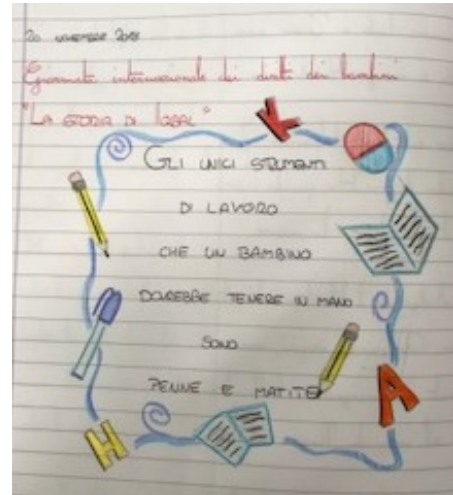 20 novembre 2018
Giornata internazionale dei diritti dei bambini
"LA STORIA DI IQBAL"
K
GLI UNICI STRUMENTI
DI LAVORO
CHE UN BAMBINO
DOVREBBE TENERE IN MANO
SONO
PENNE E MATITE
A
H